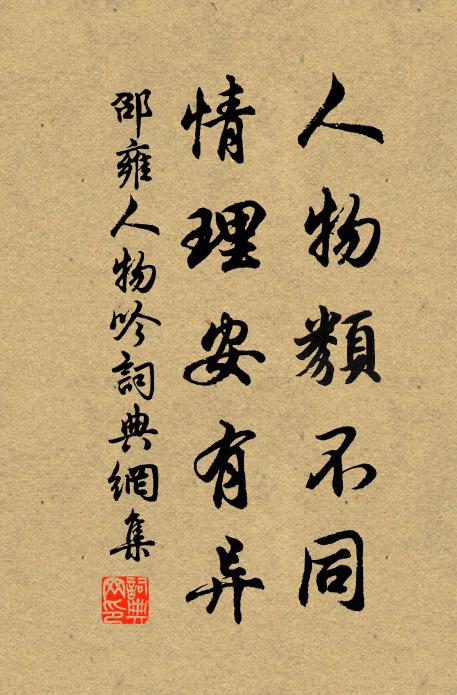 人物類不同
情理安有异
邵雍人物吟詞典網集
詞典网印